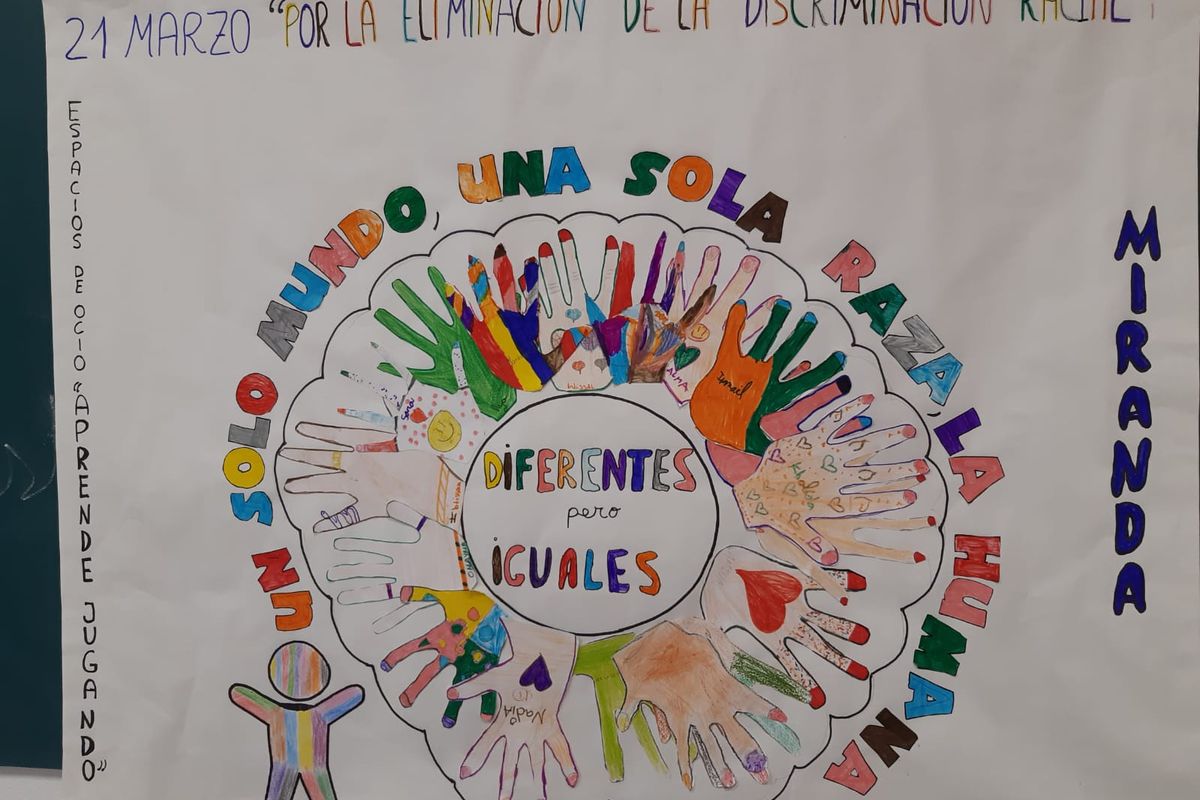 21 MARZO "POR LA ELIMINACIÓN DE LA DISCRIMINACIÓN RACIAL"
ESPACIOS DE OCIO "APRENDE JUGANDO"
UN SOLO MUNDO, UNA SOLA RAZA, LA HUMANA
MIRANDA
DIFERENTES
pero
IGUALES
Ismael
ALMA
NADIA